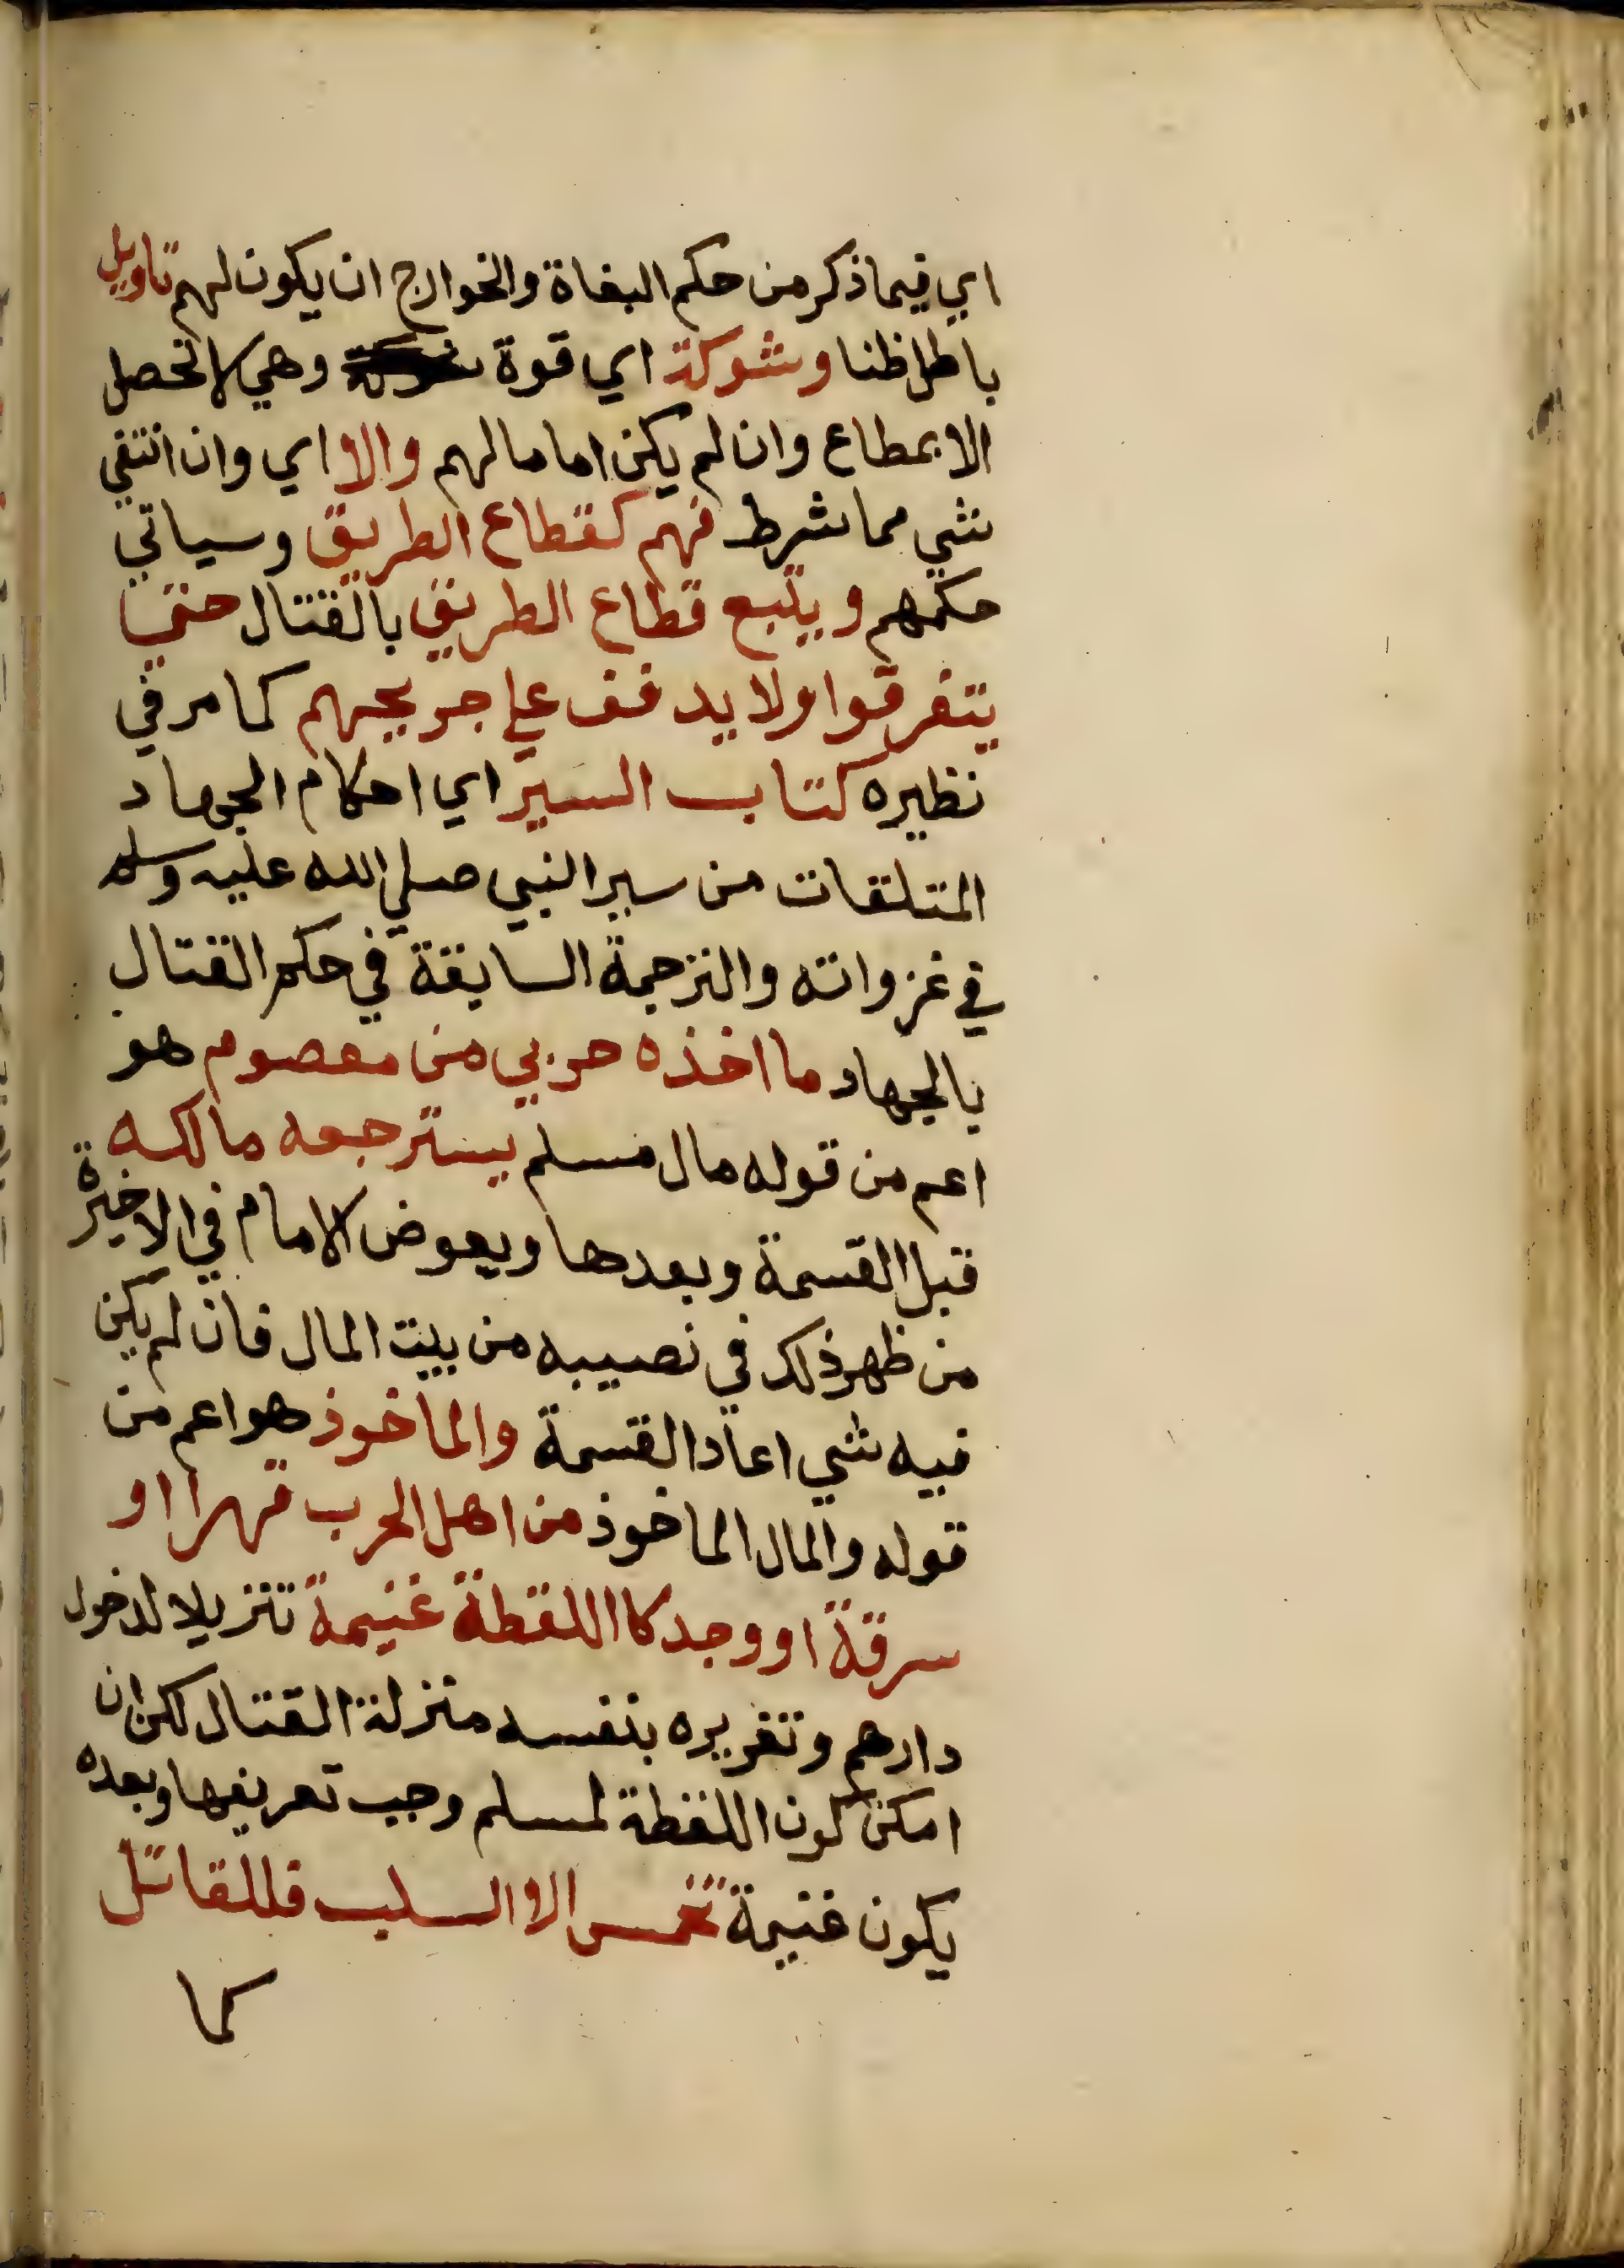 اي فيما ذكر من حكم البغاة والخوارج ان يكون لهم تاويل
باطل ظنا وشوكة اي قوة وهي لا تحصل
الا بمطاع وان لم يكن اماما لهم والا اي وان انتفي
شي مما شرط فهم كقطاع الطريق وسياتي
حكمهم ويتبع قطاع الطريق بالقتال حتي
يتفرقوا ولا يدفف علي جريحهم كما مر في
نظيره كتاب السير اي احكام الجهاد
المتلقات من سير النبي صلي الله عليه وسلم
في غزواته والترجمة السابقة في حكم القتال
بالجهاد ما اخذه حربي من معصوم هو
اعم من قوله مال مسلم يسترجعه مالكه
قبل القسمة وبعدها ويعوض الامام في الاخيرة
من ظهر ذلك في نصيبه من بيت المال فان لم يكن
فيه شي اعاد القسمة والماخوذ هو اعم من
قوله والمال الماخوذ من اهل الحرب قهرا او
سرقة او وجد كااللقطة غنيمة تنزيلا لدخول
دارهم وتغريره بنفسه منزلة القتال لكن ان
امكن كون اللقطة لمسلم وجب تعريفها وبعده
يكون غنيمة تخمس الا السلب فللقاتل
كما